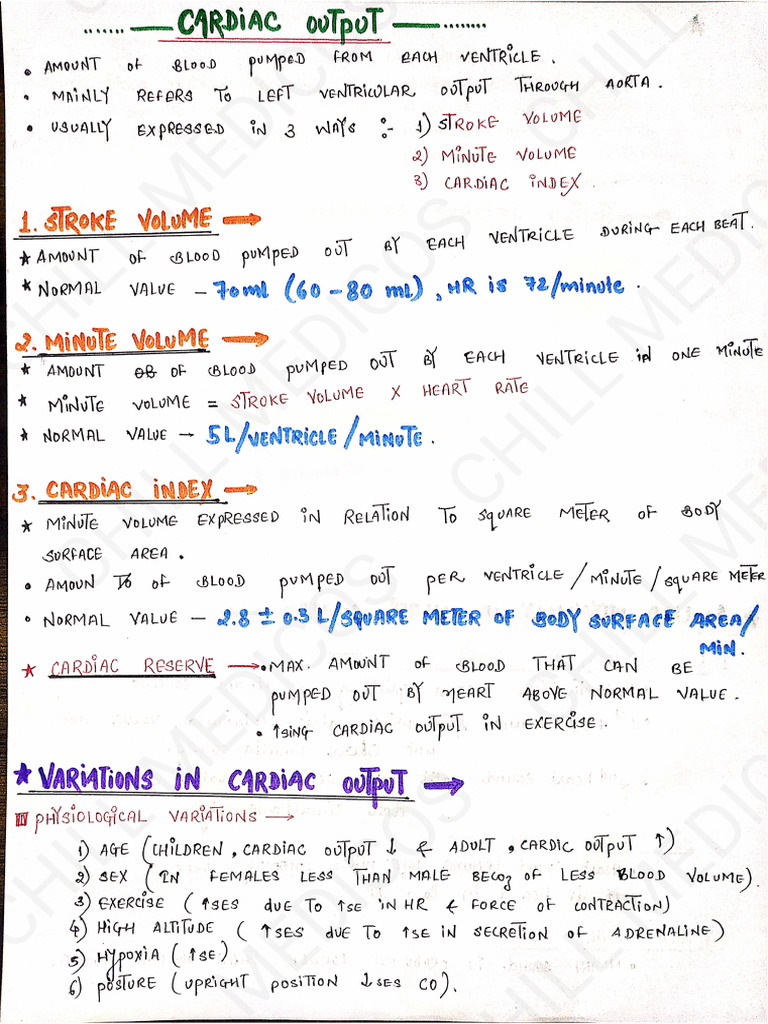 CARDIAC OUTPUT
• AMOUNT OF BLOOD PUMPED FROM EACH VENTRICLE.
• MAINLY REFERS TO LEFT VENTRICULAR OUTPUT THROUGH AORTA.
• USUALLY EXPRESSED IN 3 WAYS :- 1) STROKE VOLUME
2) MINUTE VOLUME
3) CARDIAC INDEX.
1. STROKE VOLUME →
* AMOUNT OF BLOOD PUMPED OUT BY EACH VENTRICLE DURING EACH BEAT.
* NORMAL VALUE - 70ml (60-80 mL), HR is 72/minute.
2. MINUTE VOLUME →
* AMOUNT OF BLOOD PUMPED OUT BY EACH VENTRICLE in ONE MINUTE
* MINUTE VOLUME = STROKE VOLUME X HEART RATE
* NORMAL VALUE - 5L/VENTRICLE/MINUTE.
3. CARDIAC INDEX →
* MINUTE VOLUME EXPRESSED IN RELATION TO SQUARE METER OF BODY
SURFACE AREA.
• AMOUN OF BLOOD PUMPED OUT PER VENTRICLE/MINUTE/SQUARE METER
• NORMAL VALUE - 2.8 ± 0.3 L/SQUARE METER OF BODY SURFACE AREA/
MIN.
* CARDIAC RESERVE → • MAX. AMOUNT OF BLOOD THAT CAN BE
PUMPED OUT BY HEART ABOVE NORMAL VALUE.
• ↑SING CARDIAC OUTPUT IN EXERCISE.
* VARIATIONS IN CARDIAC OUTPUT →
PHYSIOLOGICAL VARIATIONS →
1) AGE (CHILDREN, CARDIAC OUTPUT ↓ & ADULT, CARDIC OUTPUT ↑)
2) SEX (IN FEMALES LESS THAN MALE BECOZ OF LESS BLOOD VOLUME).
3) EXERCISE (↑SES DUE TO ↑SE IN HR & FORCE OF CONTRACTION)
4) HIGH ALTITUDE (↑SES DUE TO ↑SE IN SECRETION OF ADRENALINE)
5) HYPOXIA (↑SE).
6) POSTURE (UPRIGHT POSITION ↓SES CO).
CHILL MEDICOS